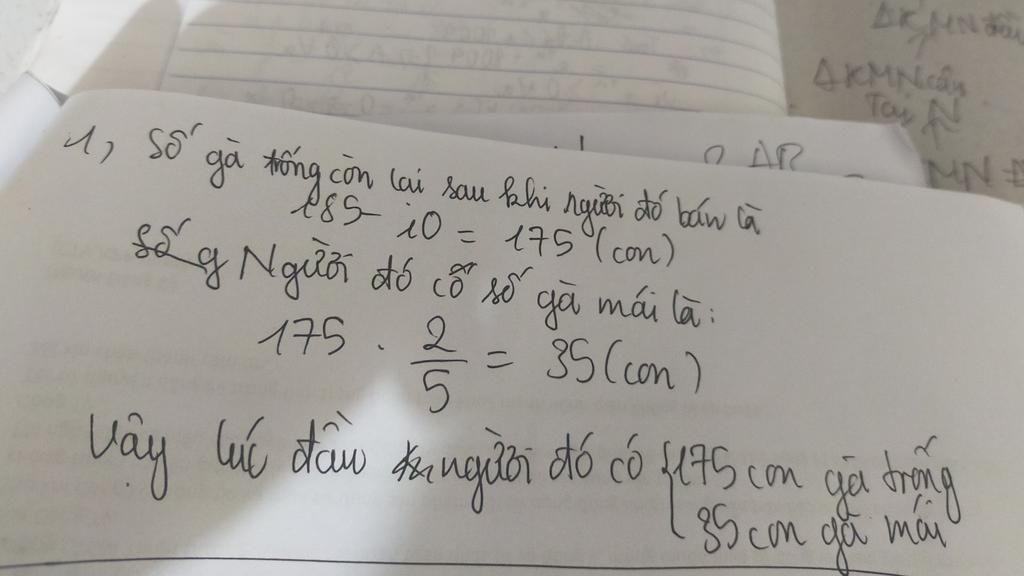 ΔKMN
ΔKMN cân
Tại N
1, Số gà trống còn lại sau khi người đó bán là
185 - 10 = 175 (con)
Người đó có số gà mái là:
175 . 2/5 = 35 (con)
Vậy lúc đầu người đó có { 175 con gà trống
35 con gà mái